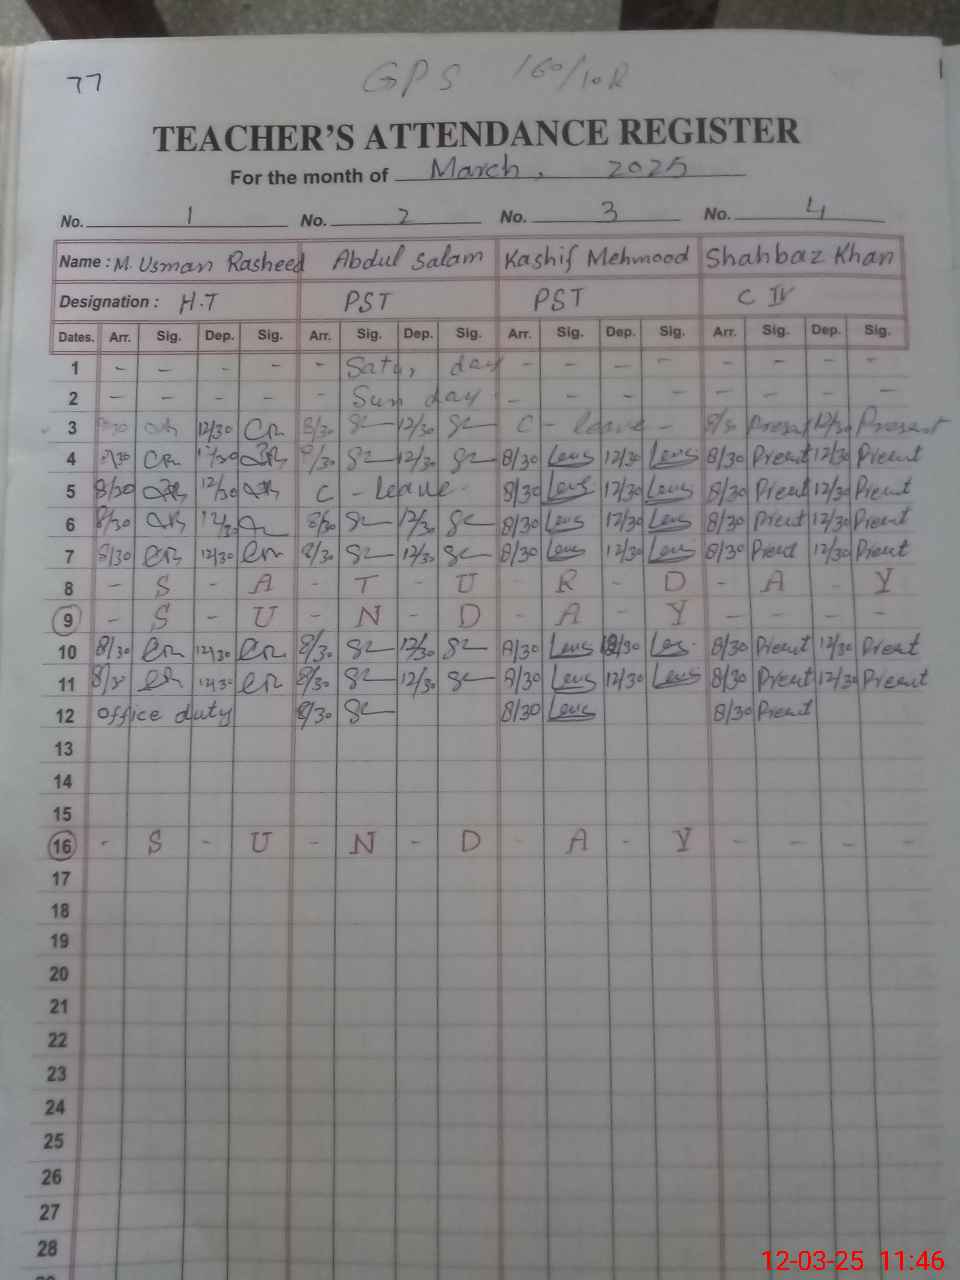 77 GPS 160/10R
TEACHER'S ATTENDANCE REGISTER
For the month of March, 2025
No. 1 No. 2 No. 3 No. 4
Name : M. Usman Rasheed Abdul Salam Kashif Mehmood Shahbaz Khan
Designation : H.T PST PST C IV
Dates. Arr. Sig. Dep. Sig. Arr. Sig. Dep. Sig. Arr. Sig. Dep. Sig. Arr. Sig. Dep. Sig.
1 - - - - - Satur day - - - - - - -
2 - - - - - Sun day - - - - - - - -
3 8/30 12/30 8/30 12/30 C - leave - 8/30 Present 12/30 Present
4 8/30 12/30 8/30 12/30 8/30 12/30 8/30 Present 12/30 Present
5 8/30 12/30 C - Leave - 8/30 12/30 8/30 Present 12/30 Present
6 8/30 12/30 8/30 12/30 8/30 12/30 8/30 Present 12/30 Present
7 8/30 12/30 8/30 12/30 8/30 12/30 8/30 Present 12/30 Present
8 - S - A - T - U - R - D - A - Y
9 - S - U - N - D - A - Y - - - -
10 8/30 12/30 8/30 12/30 8/30 12/30 8/30 Present 12/30 Present
11 8/30 12/30 8/30 12/30 8/30 12/30 8/30 Present 12/30 Present
12 office duty 8/30 8/30 8/30 Present
13
14
15
16 - S - U - N - D - A - Y - - - -
17
18
19
20
21
22
23
24
25
26
27
28
12-03-25 11:46